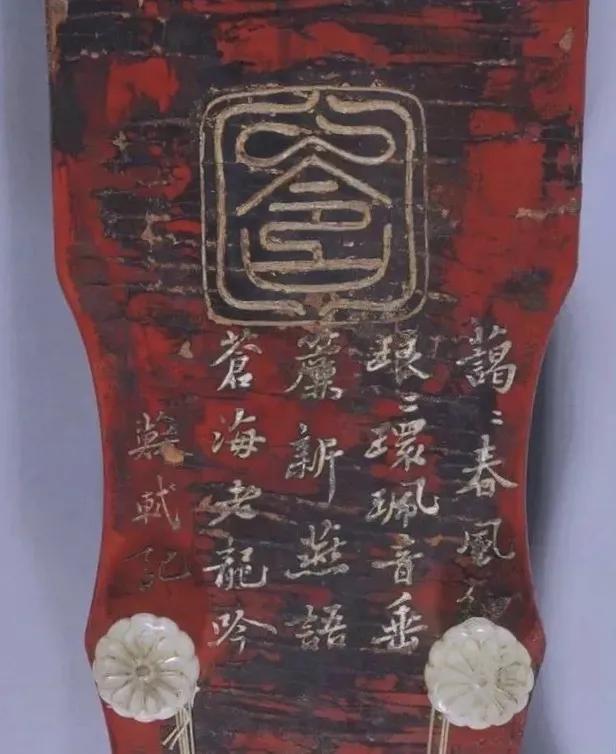 藹〻春風細
琅〻環珮音垂
簾新燕語
蒼海老龍吟
蘇軾記